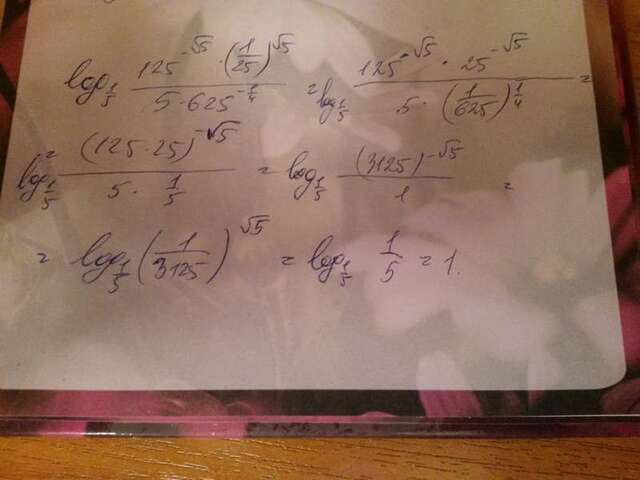 log_{1/5} \frac{125^{-\sqrt{5}} \cdot (\frac{1}{25})^{\sqrt{5}}}{5 \cdot 625^{-\frac{1}{4}}} = log_{1/5} \frac{125^{-\sqrt{5}} \cdot 25^{-\sqrt{5}}}{5 \cdot (\frac{1}{625})^{\frac{1}{4}}} =
= log_{1/5} \frac{(125 \cdot 25)^{-\sqrt{5}}}{5 \cdot \frac{1}{5}} = log_{1/5} \frac{(3125)^{-\sqrt{5}}}{1} =
= log_{1/5} (\frac{1}{3125})^{\sqrt{5}} = log_{1/5} \frac{1}{5} = 1.